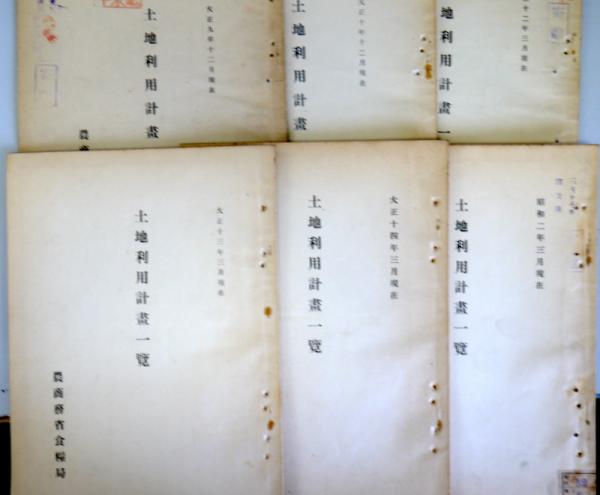 大正九年十二月現在
土地利用計畫
農商
大正十年十二月現在
土地利用計畫
十二年三月現在
土地利用計畫一
大正十三年三月現在
土地利用計畫一覽
農商務省食糧局
大正十四年三月現在
土地利用計畫一覽
昭和二年三月現在
土地利用計畫一覽